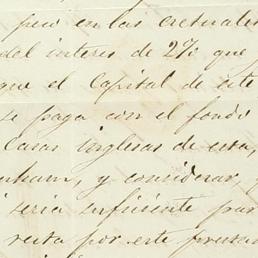 pero en las actuales
del interes de 2% que
que el Capital de este
se paga con el fondo
Casas inglesas de esta,
nham, y considerar,
seria suficiente par
resta por este